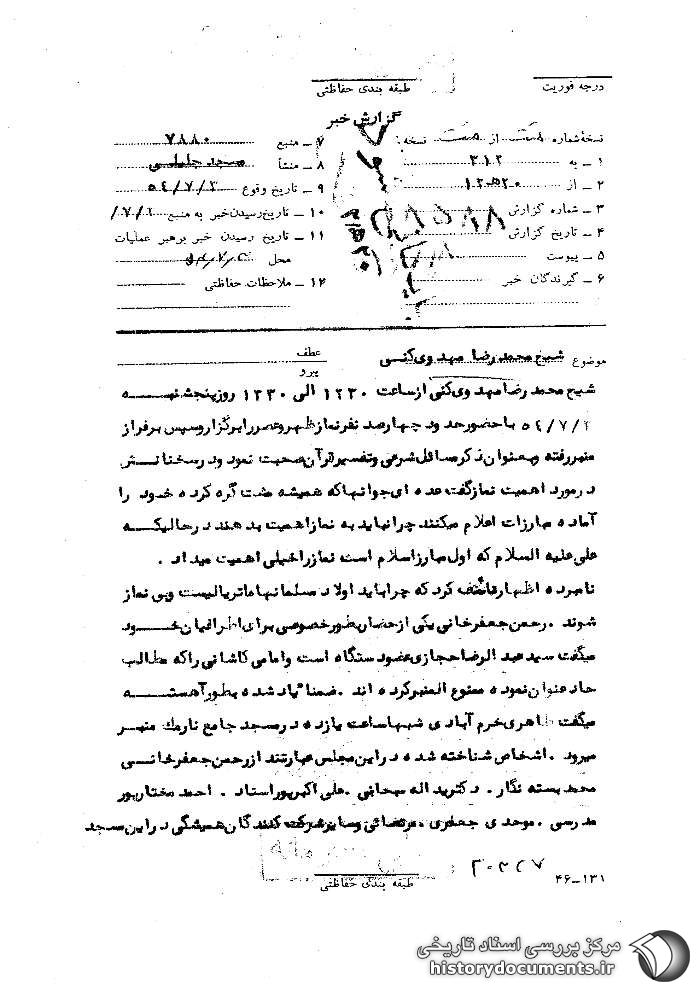 درجه فوریت
طبقه بندی حفاظتی
گزارش خبر
نسخهٔ شماره
از
نسخه
۱ ـ به ۳۱۲
۲ ـ از ۱۲۵۲۰
۳ ـ شماره گزارش
۴ ـ تاریخ گزارش
۵ ـ پیوست
۶ ـ گیرندگان خبر
۷ ـ منبع ۷۸۸۰
۸ ـ منشأ مسجد جلیلی
۹ ـ تاریخ وقوع ۵٤/۷/۳
۱۰ ـ تاریخ رسیدن خبر به منبع
۱۱ ـ تاریخ رسیدن خبر برهبر عملیات
محل
۱۲ ـ ملاحظات حفاظتی
موضوع شیخ محمد رضا مهدوی کنی
عطف
پیرو
شیخ محمد رضا مهدوی کنی از ساعت ۱۲۳۰ الی ۱۳۳۰ روز پنجشنبه
۵٤/۷/۳ با حضور حدود چهارصد نفر نماز ظهر و عصر را برگزار و سپس بر فراز
منبر رفته و بعنوان ذکر مسائل شرعی و تفسیر قرآن صحبت نمود و در سخنانش
در مورد اهمیت نماز گفت عده ای جوانها که همیشه مشت گره کرده خود را
آماده مبارزات اعلام میکنند چرا نباید به نماز اهمیت بدهند در حالیکه
علی علیه السلام که اول مبارز اسلام است نماز را خیلی اهمیت میداد .
نامبرده اظهار تأسف کرد که چرا باید اولاد مسلمانها ماتریالیست و بی نماز
شوند . رحمن جعفرخانی یکی از حضار بطور خصوصی برای اطرافیان خود
میگفت سید عبدالرضا حجازی عضو دستگاه است و امامی کاشانی را که مطالب
حاد عنوان نموده ممنوع المنبر کرده اند . ضمنا" یاد شده بطور آهسته
میگفت طاهری خرم آبادی شبها ساعت یازده در مسجد جامع نارمک منبر
میرود . اشخاص شناخته شده در این مجلس عبارتند از رحمن جعفرخانی
محمد بسته نگار . دکتر یداله سحابی . علی اکبر پور استاد . احمد مختارپور
مدرسی . موحدی جعفری . مرتضائی و سایر شرکت کنندگان همیشگی در این مسجد
طبقه بندی حفاظتی
۴۶-۱۳۱
مرکز بررسی اسناد تاریخی
historydocuments.ir